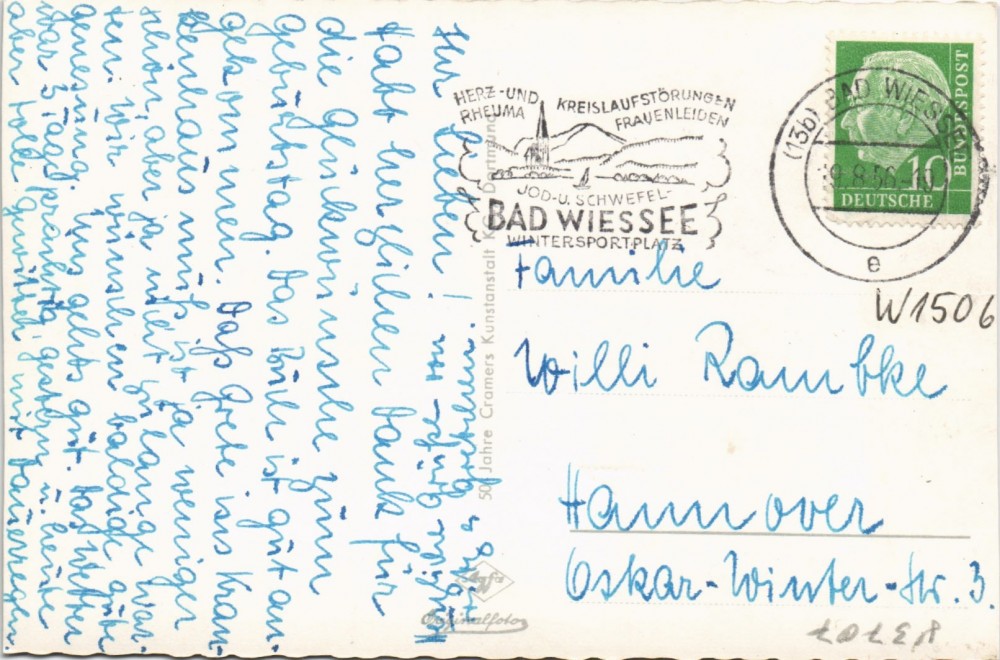 Ihr Lieben!
Habt herzlichen Dank für
die Glückwünsche zum
Geburtstag. Das Buch ist gut an-
gekommen. Daß Grete ins Kran-
kenhaus muß, ist ja weniger
schön, aber ja nicht zu lange war-
ten. Wir wünschen baldige gute
Genesung. Uns gehts gut. Das Wetter
war 3 Tage prachtig, gestern u. heute
aber tolle Gewitter, mit Dauerregen.
Herzliche Grüße von
Gretchen
HERZ- UND
RHEUMA
KREISLAUFSTÖRUNGEN
FRAUENLEIDEN
JOD-U. SCHWEFEL-
BAD WIESSEE
WINTERSPORTPLATZ
(13b) BAD WIESSEE
9.8.56-10
e
10
BUNDESPOST
DEUTSCHE
W1506
Familie
Willi Rambke
Hannover
Oskar-Winter-Str. 3.
50 Jahre Cramers Kunstanstalt KG Dortmund
Agfa
Originalfoto